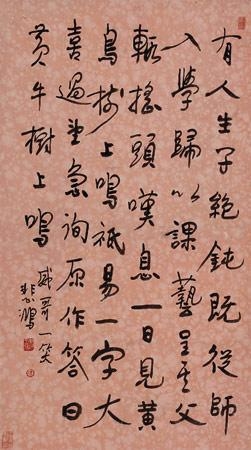 有人生子絕鈍既從師
入學歸以課藝呈其父
輒搖頭嘆息一日見黃
鳥樹上鳴祇易一字大
喜過望急詢原作答曰
黃牛樹上鳴
威哥一笑
悲鴻